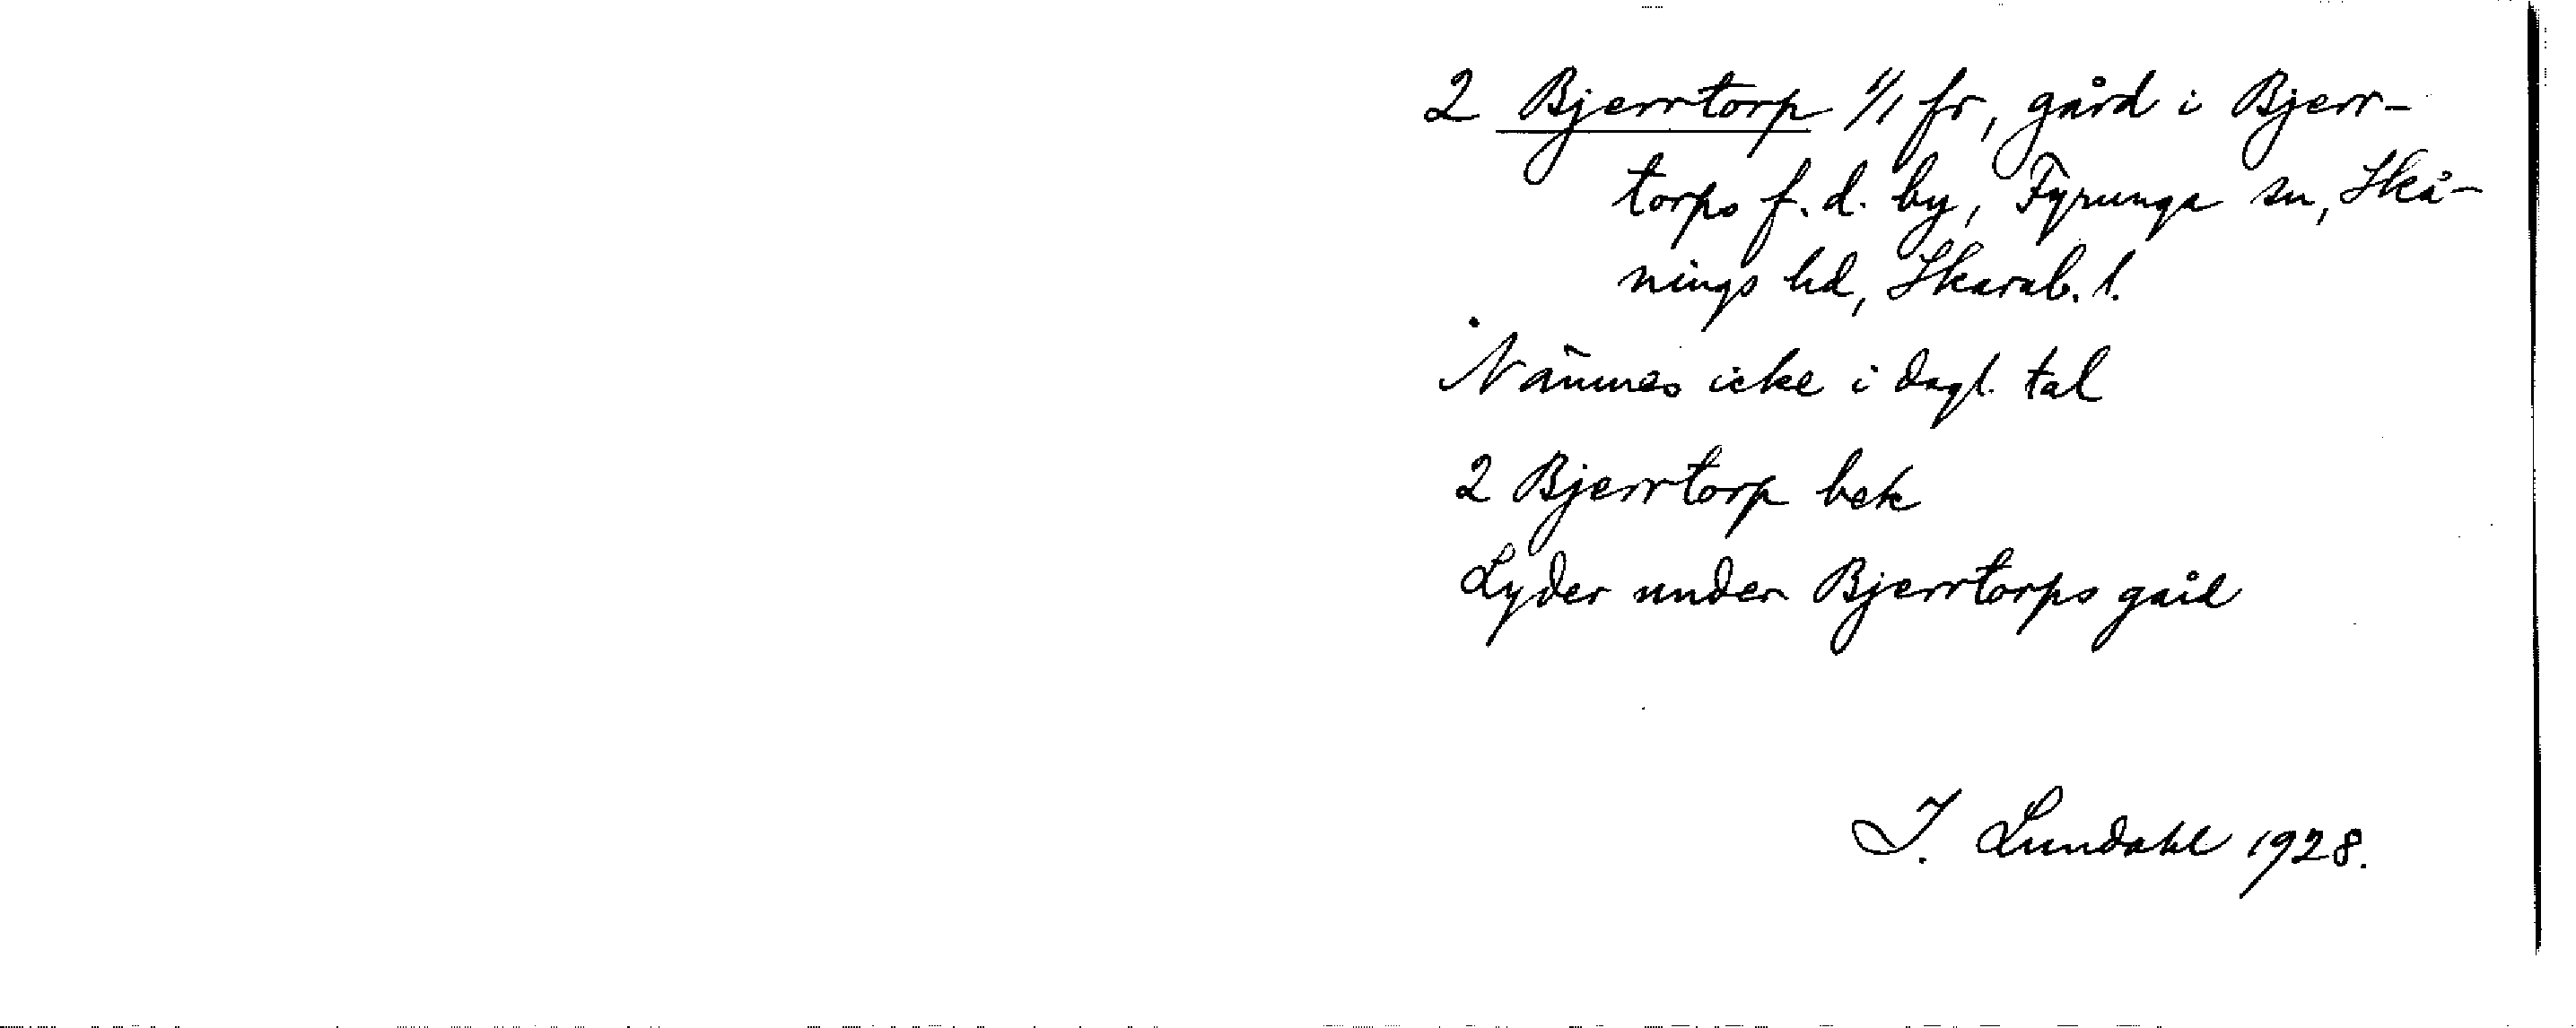 2 Bjerrtorp 1/1 fr, gård i Bjerr-
torps f. d. by, Fyrunga sn, Skå-
nings hd, Skarab. l.
Nämnes icke i dagl. tal
2 Bjerrtorp bek
Lyder under Bjerrtorps gård
I. Lundahl 1928.